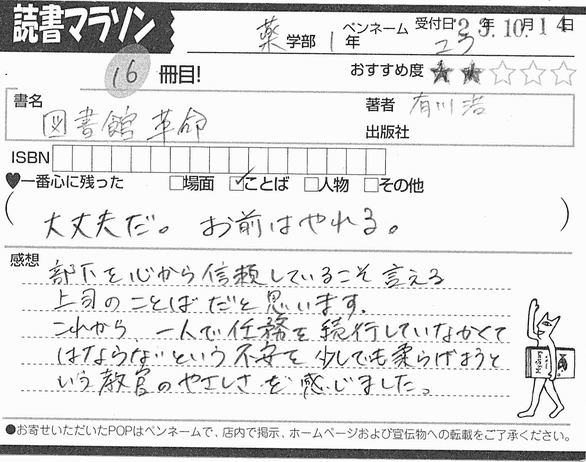 読書マラソン
薬学部1年 ペンネーム コラ 受付日'23年10月14日
16冊目! おすすめ度★★☆☆☆
書名 図書館革命
著者 有川浩
出版社
ISBN
♥一番心に残った □場面 ☑ことば □人物 □その他
(大丈夫だ。お前はやれる。)
感想
部下を心から信頼しているこそ言える
上司のことばだと思います。
これから一人で任務を続行していなかくて
はならないという不安を少しでも柔らげようと
いう教官のやさしさを感じました。
●お寄せいただいたPOPはペンネームで、店内で掲示、ホームページおよび宣伝物への転載をご了承ください。